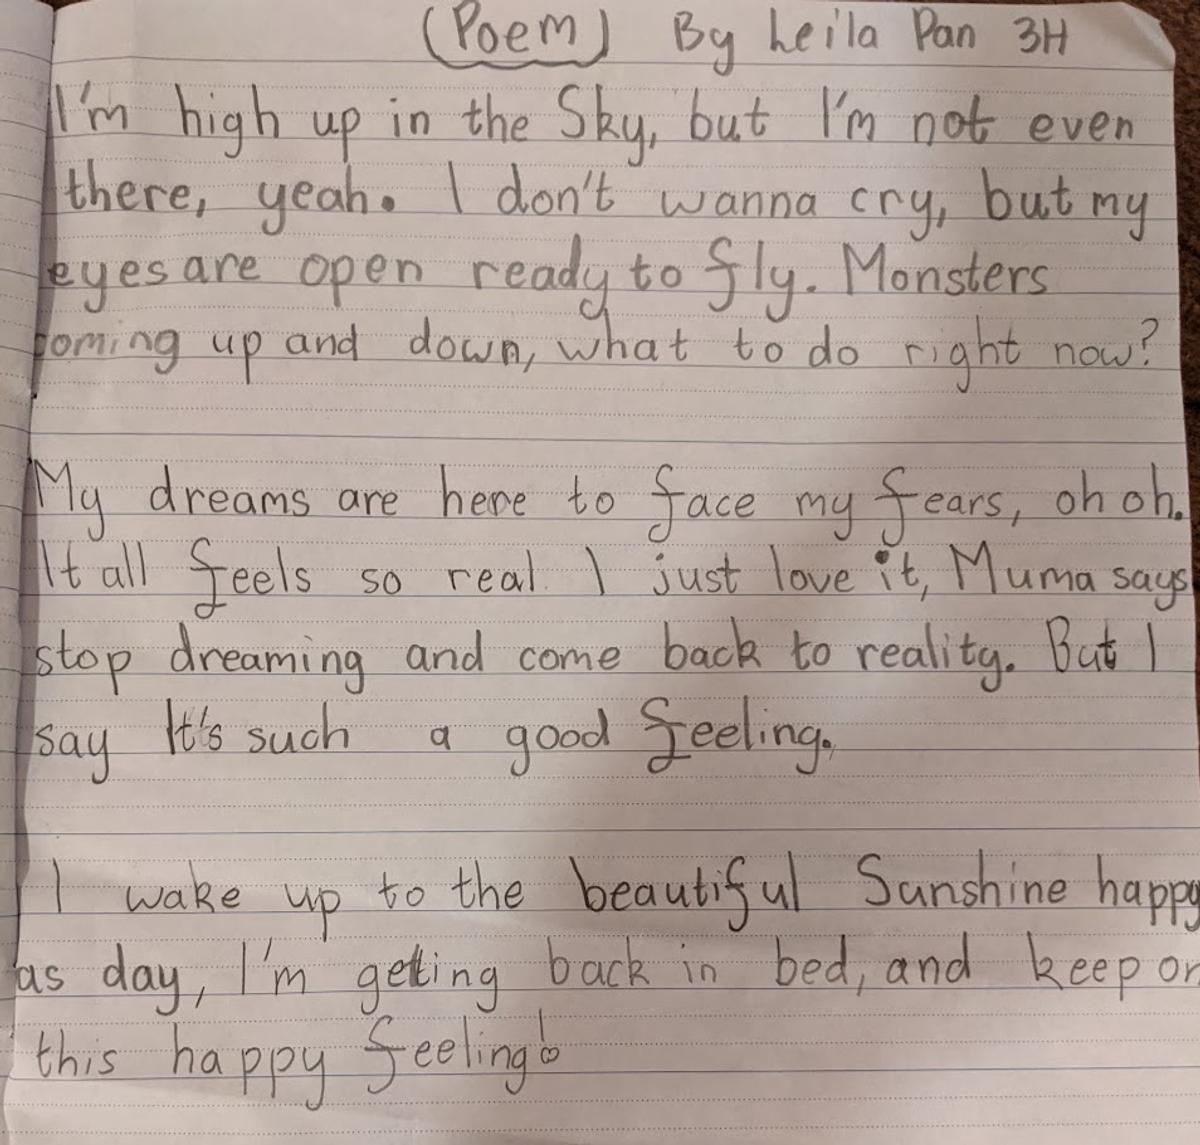 (Poem) By Leila Pan 3H
I'm high up in the Sky, but I'm not even
there, yeah. I don't wanna cry, but my
eyes are open ready to fly. Monsters
coming up and down, what to do right now?
My dreams are here to face my fears, oh oh.
It all feels so real. I just love it, Muma says
stop dreaming and come back to reality. But I
say It's such a good feeling.
I wake up to the beautiful Sunshine happy
as day, I'm getting back in bed, and keep on
this happy feeling!